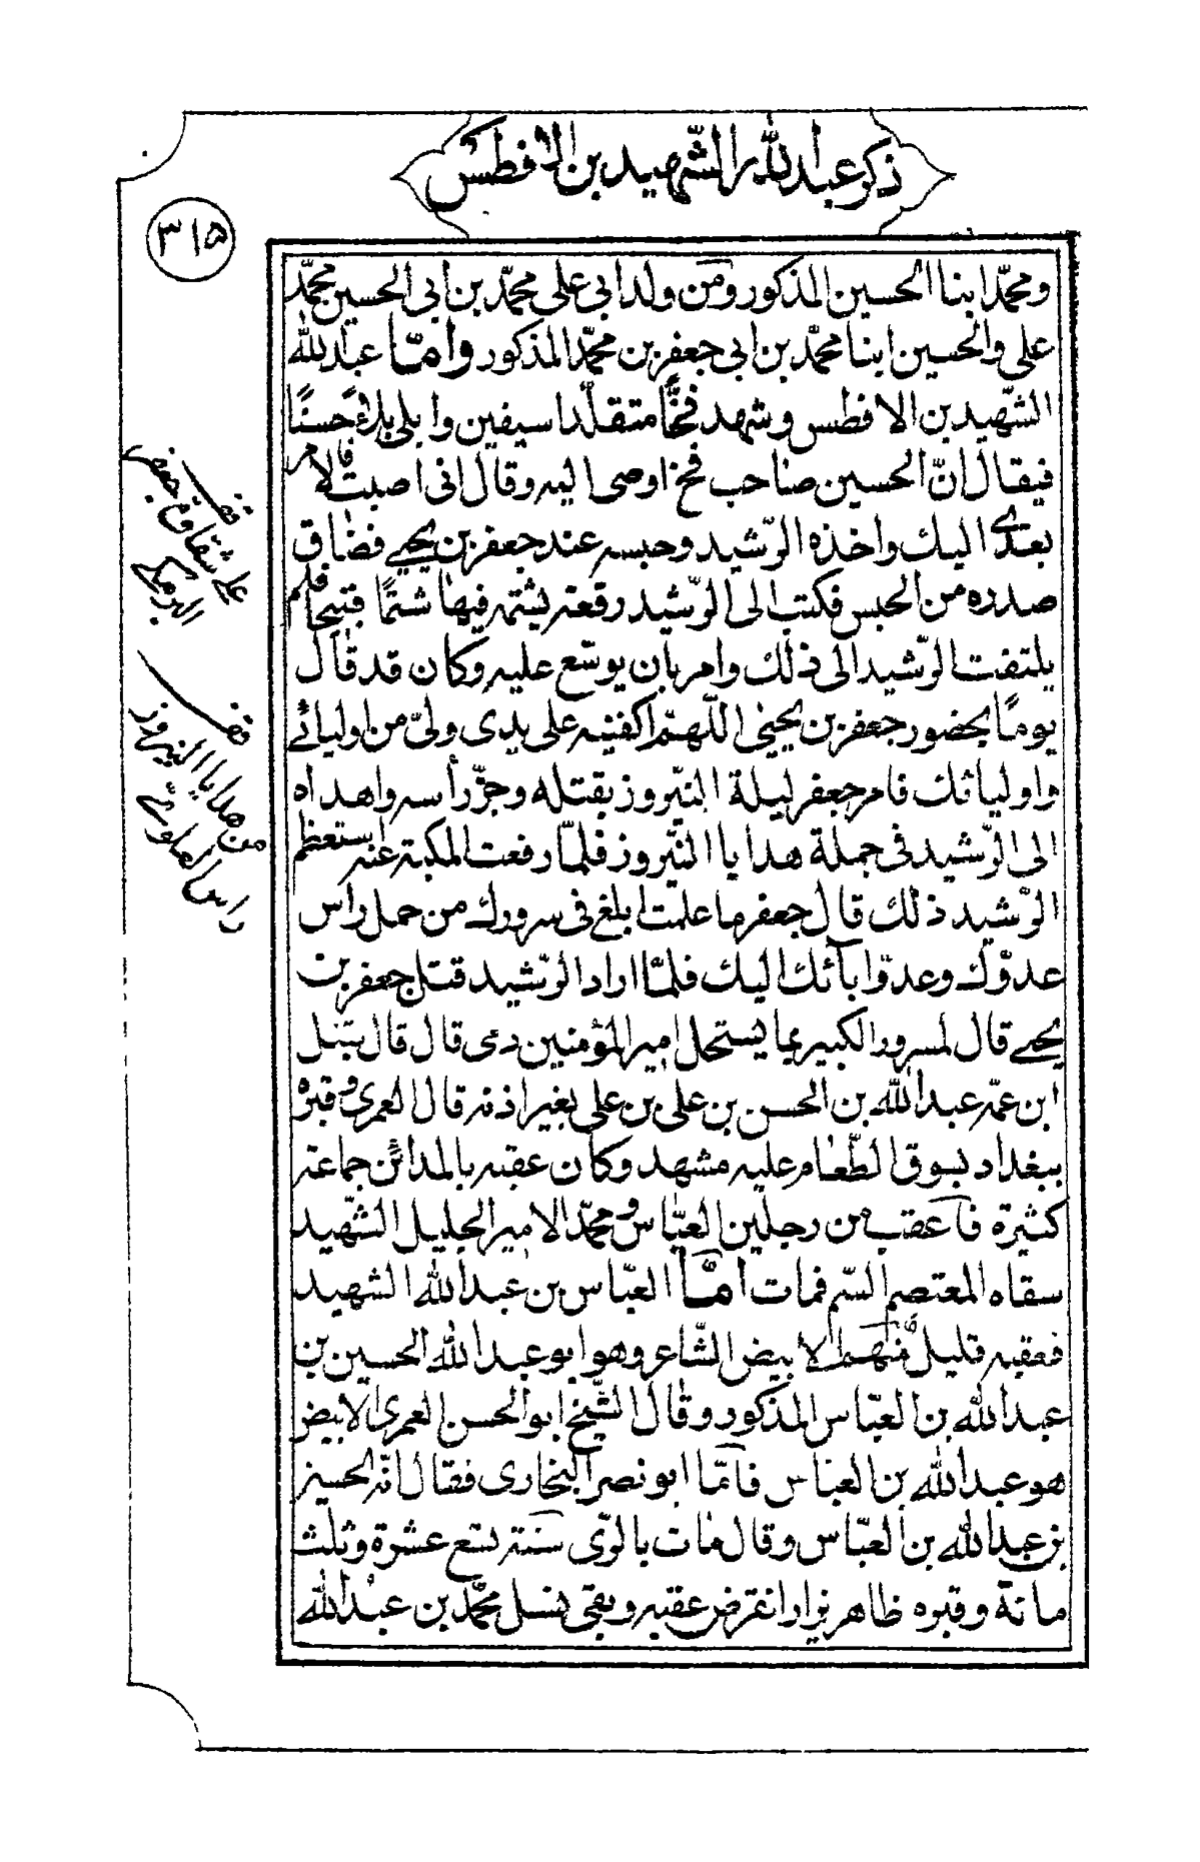 ذكر عبد الله الشّهيد بن الافطس
٣١٥
ومحمّد ابنا الحسين المذكور ومن ولد ابى على محمّد بن أبى الحسين محمّد
على والحسين ابنا محمّد بن ابى جعفر بن محمّد المذكور وامّا عبد الله
الشّهيد بن الافطس وشهد فخًّا متقلّدا سيفين وابلى بلاءً حسنًا
فيقال انّ الحسين صاحب فخ اوصى اليه وقال انى اصبت فالامر
بعدى اليك واخذه الرّشيد وحبسه عند جعفر بن يحيى فضاق
صدره من الحبس فكتب الى الرّشيد رقعة يشتمه فيها شتمًا قبيحا فلم
يلتفت الرّشيد الى ذلك وامر بان يوسّع عليه وكان قد قال
يومًا بحضور جعفر بن يحيى اللّهمّ اكفنيه على يدى ولىّ من اوليائى
واوليائك فامر جعفر ليلة النيّروز بقتله وجزّ رأسه واهداه
الى الرّشيد فى جملة هدايا النّيروز فلمّا رفعت المكبة عنه استعظم
الرّشيد ذلك قال جعفر ما علمت ابلغ فى سرورك من حمل راس
عدوّك وعدوّ ابآئك اليك فلمّا اراد الرّشيد قتل جعفر بن
يحيى قال لمسرور الكبير بما يستحل امير المؤمنين دمى قال قال بقتل
ابن عمّه عبد الله بن الحسن بن على بن على بغير اذنه قال العمرى وقبره
ببغداد بسوق الطّعام عليه مشهد وكان عقبه بالمدائن جماعة
كثيرة فاعقب من رجلين العبّاس ومحمّد الامير الجليل الشّهيد
سقاه المعتصم السّم فمات امّا العبّاس بن عبد الله الشهيد
فعقبه قليل منهم الابيض الشّاعر وهو ابو عبد الله الحسين بن
عبد الله بن العبّاس المذكور وقال الشّيخ ابو الحسن العمرى الابيض
هو عبد الله بن العباس فامّا ابو نصر البخارى فقال انّه الحسين
بن عبد الله بن العبّاس وقال مات بالرّى سنة تسع عشرة وثلث
مائة وقبره ظاهر يزار انقرض عقبه وبقى نسل محمّد بن عبد الله
قف
على شقاوة جعفر
البرمكى
قف
من هدايا النيروز
راس العلوى